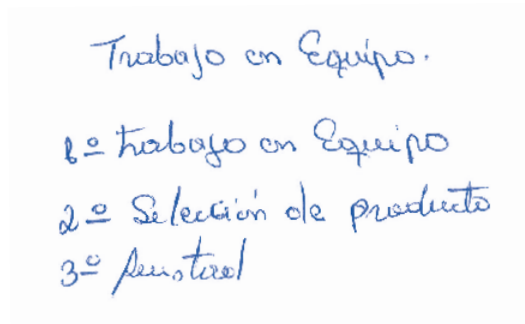 Trabajo en Equipo.
1º trabajo en Equipo
2º Selección de producto
3º